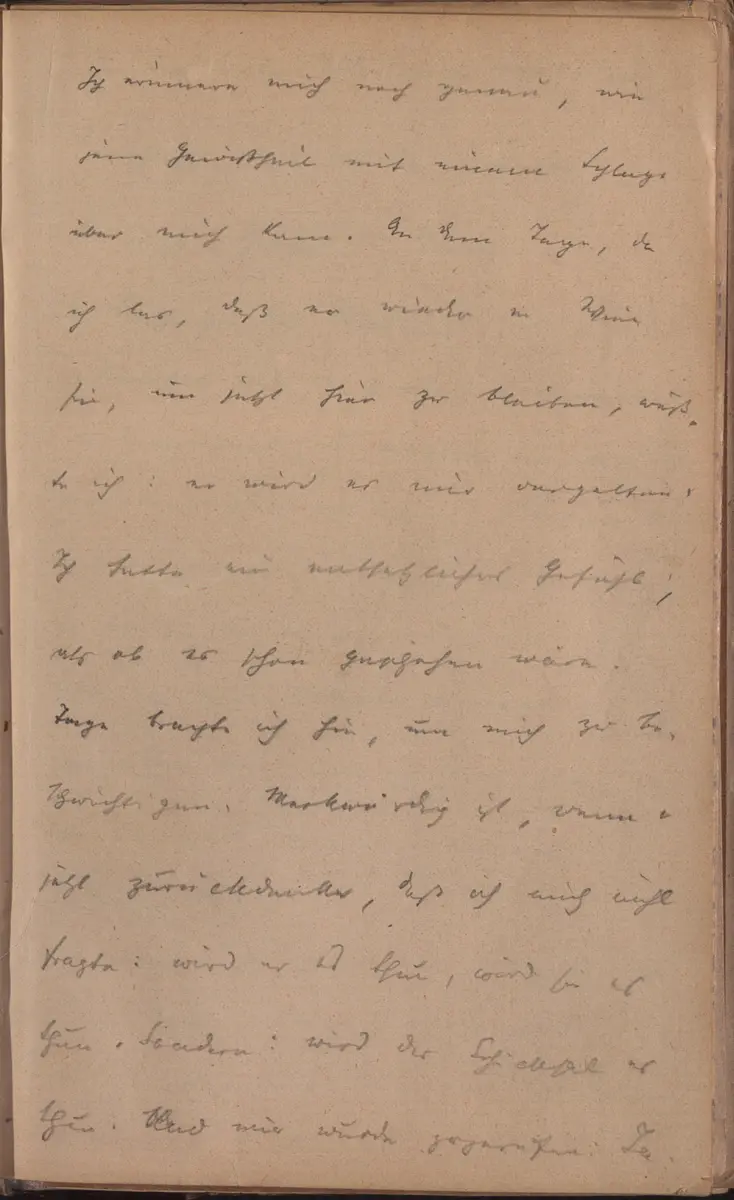 Ich erinnere mich noch genau, wie
jene Gewißheit mit einem Schlage
über mich kam. An dem Tage, da
ich las, daß er wieder in Wien
sei, um jetzt hier zu bleiben, wuß-
te ich: er wird es mir vergelten.
Ich hatte ein entsetzliches Gefühl,
als ob es schon geschehen wäre.
Tage brachte ich hin, um mich zu be-
schwichtigen. Merkwürdig ist, wenn
jetzt zurückdenke, daß ich mich nicht
fragte: wird er es thun, wird sie es
thun. Sondern: wird das Schicksal es
thun. Und mir wurde zugerufen: Ja.